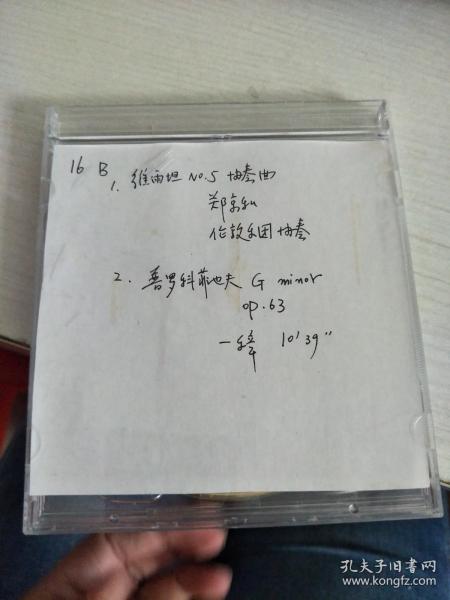 16 B
1. 维雨坦 No.5 协奏曲
郑京和
伦敦乐团协奏
2. 普罗科菲也夫 G minor
op.63
一乐章 10'39"
孔夫子旧书网
www.kongfz.com